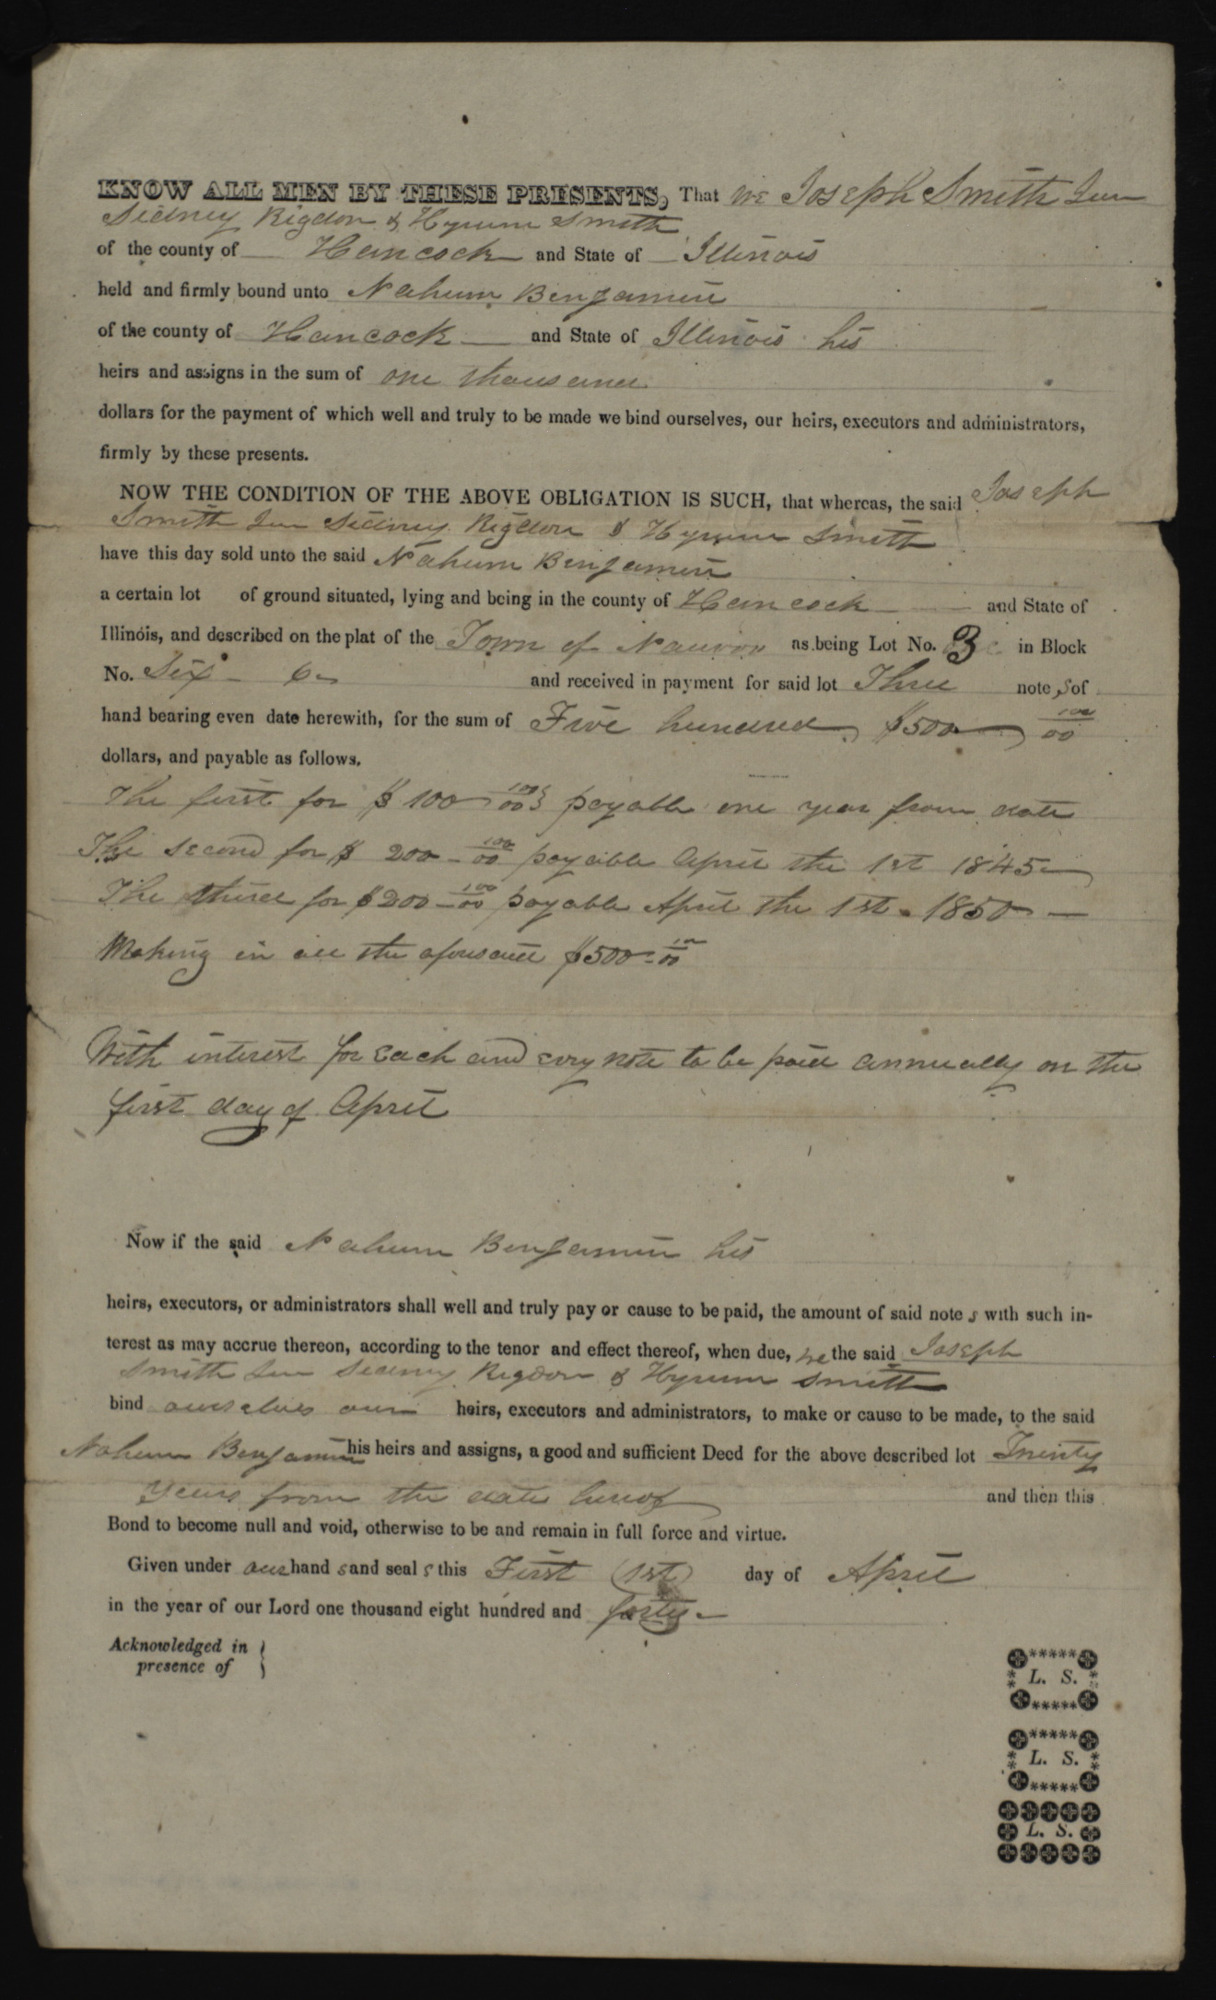 KNOW ALL MEN BY THESE PRESENTS, That we Joseph Smith Jun
Sidney Rigdon & Hyrum Smith
of the county of Hancock and State of Illinois
held and firmly bound unto Nahum Benjamin
of the county of Hancock and State of Illinois his
heirs and assigns in the sum of one thousand
dollars for the payment of which well and truly to be made we bind ourselves, our heirs, executors and administrators,
firmly by these presents.
NOW THE CONDITION OF THE ABOVE OBLIGATION IS SUCH, that whereas, the said Joseph
Smith Jun Sidney Rigdon & Hyrum Smith
have this day sold unto the said Nahum Benjamin
a certain lot of ground situated, lying and being in the county of Hancock and State of
Illinois, and described on the plat of the Town of Nauvoo as being Lot No. 3 in Block
No. Six - 6- and received in payment for said lot Three note s of
hand bearing even date herewith, for the sum of Five hundred, $500 100/00
dollars, and payable as follows.
The first for $100 100/00 payable one year from date
The second for $ 200 - 100/00 payable April the 1st 1845 —
The third for $200 - 100/00 payable April the 1st. 1850 —
Making in all the aforesaid $500 - 100/00
With interest for Each and evry note to be paid annually on the
first day of April
Now if the said Nahum Benjamin his
heirs, executors, or administrators shall well and truly pay or cause to be paid, the amount of said note s with such in-
terest as may accrue thereon, according to the tenor and effect thereof, when due, we the said Joseph
Smith Jun Sidney Rigdon & Hyrum Smith
bind ourselves our heirs, executors and administrators, to make or cause to be made, to the said
Nahum Benjamin his heirs and assigns, a good and sufficient Deed for the above described lot Twenty
Years from the date hereof and then this
Bond to become null and void, otherwise to be and remain in full force and virtue.
Given under our hand s and seal s this First (1st) day of April
in the year of our Lord one thousand eight hundred and forty -
Acknowledged in
presence of
L. S.
L. S.
L. S.